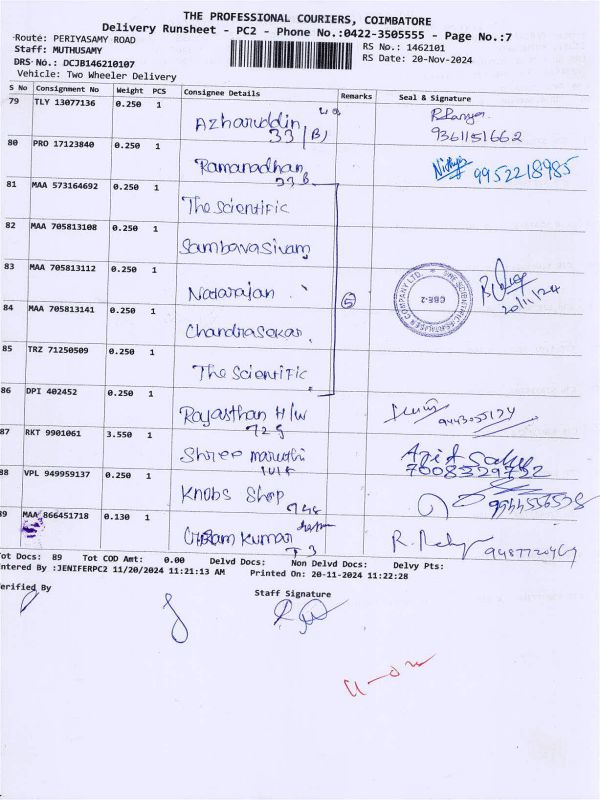 THE PROFESSIONAL COURIERS, COIMBATORE
Delivery Runsheet - PC2 - Phone No.:0422-3505555 - Page No.:7
Route: PERIYASAMY ROAD
RS No.: 1462101
Staff: MUTHUSAMY
RS Date: 20-Nov-2024
DRS No.: DCJB146210107
Vehicle: Two Wheeler Delivery
S No Consignment No Weight PCS Consignee Details Remarks Seal & Signature
79 TLY 13077136 0.250 1
Azharuddin
33 (B)
9361151662
80 PRO 17123840 0.250 1
Ramanadhan
33 B
9952218985
81 MAA 573164692 0.250 1
The Scientific
82 MAA 705813108 0.250 1
Sambavasivam
83 MAA 705813112 0.250 1
Natarajan
5
CBE-2
20/11/24
84 MAA 705813141 0.250 1
Chandrasekar
85 TRZ 71250509 0.250 1
The Scientific
86 DPI 402452 0.250 1
Rajasthan H/W
729
9443055124
87 RKT 9901061 3.550 1
Shree maruthi
7008329752
88 VPL 949959137 0.250 1
Knobs Shop
9944556528
89 MAA 866451718 0.130 1
Ram Kumar
Tot Docs: 89 Tot COD Amt: 0.00 Delvd Docs: Non Delvd Docs: Delvy Pts:
ntered By :JENIFERPC2 11/20/2024 11:21:13 AM Printed On: 20-11-2024 11:22:28
erified By
Staff Signature